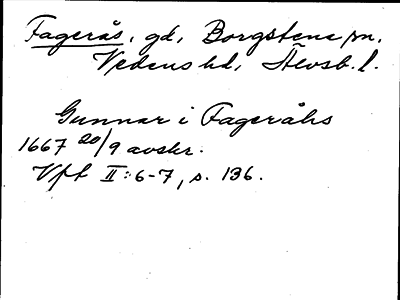 Fagerås, gd, Borgstena sn.
Vedens hd, Älvsb. l.
Gunnar i Fageråhs
1667 20/9 avskr.
Vft II:6-7, s. 136.